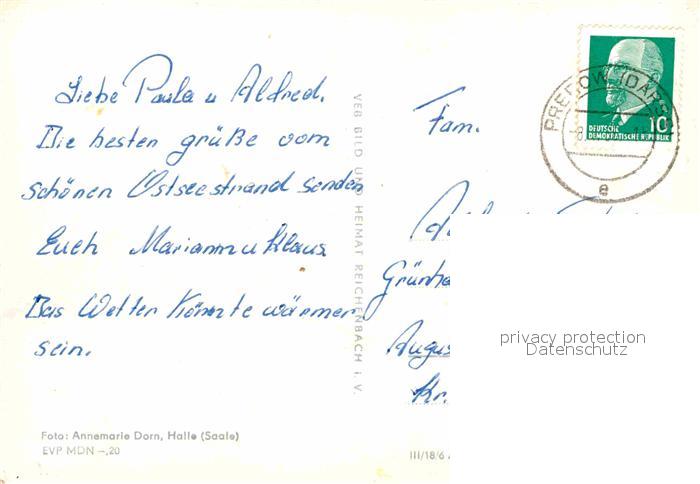 Liebe Paula u Alfred.
Die besten grüße vom
schönen Ostseestrand senden
Euch Mariann u Klaus
Das Wetter könnte wärmer
sein.
Foto: Annemarie Dorn, Halle (Saale)
EVP MDN –,20
VEB BILD UND HEIMAT REICHENBACH i. V.
PREROW (DARSS)
e
DEUTSCHE 10
DEMOKRATISCHE REPUBLIK
Fam.
Kr.
privacy protection
Datenschutz
III/18/6